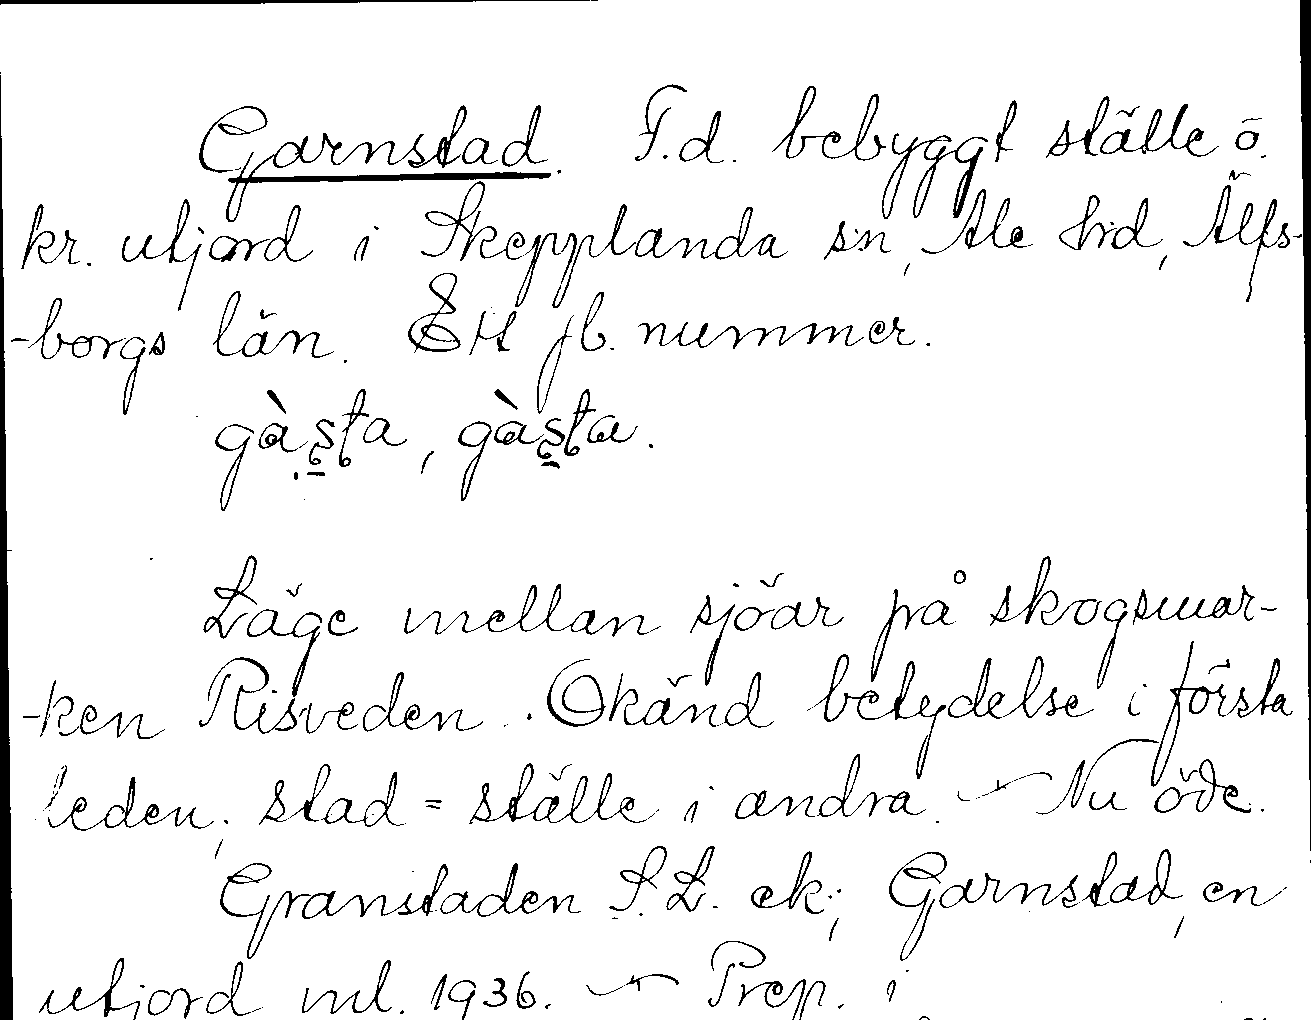 Garnstad. F.d. bebyggt ställe o.
kr. utjord i Skepplanda sn, Ale hd, Älfs-
-borgs län. Ett jb. nummer.
gàʂta, gàʂta.
Läge mellan sjöar på skogsmar-
-ken Risveden. Okänd betydelse i första
leden; stad = ställe i andra. - Nu öde.
Granstaden S.L. ek.; Garnstad, en
utjord ml. 1936. - Prep. i